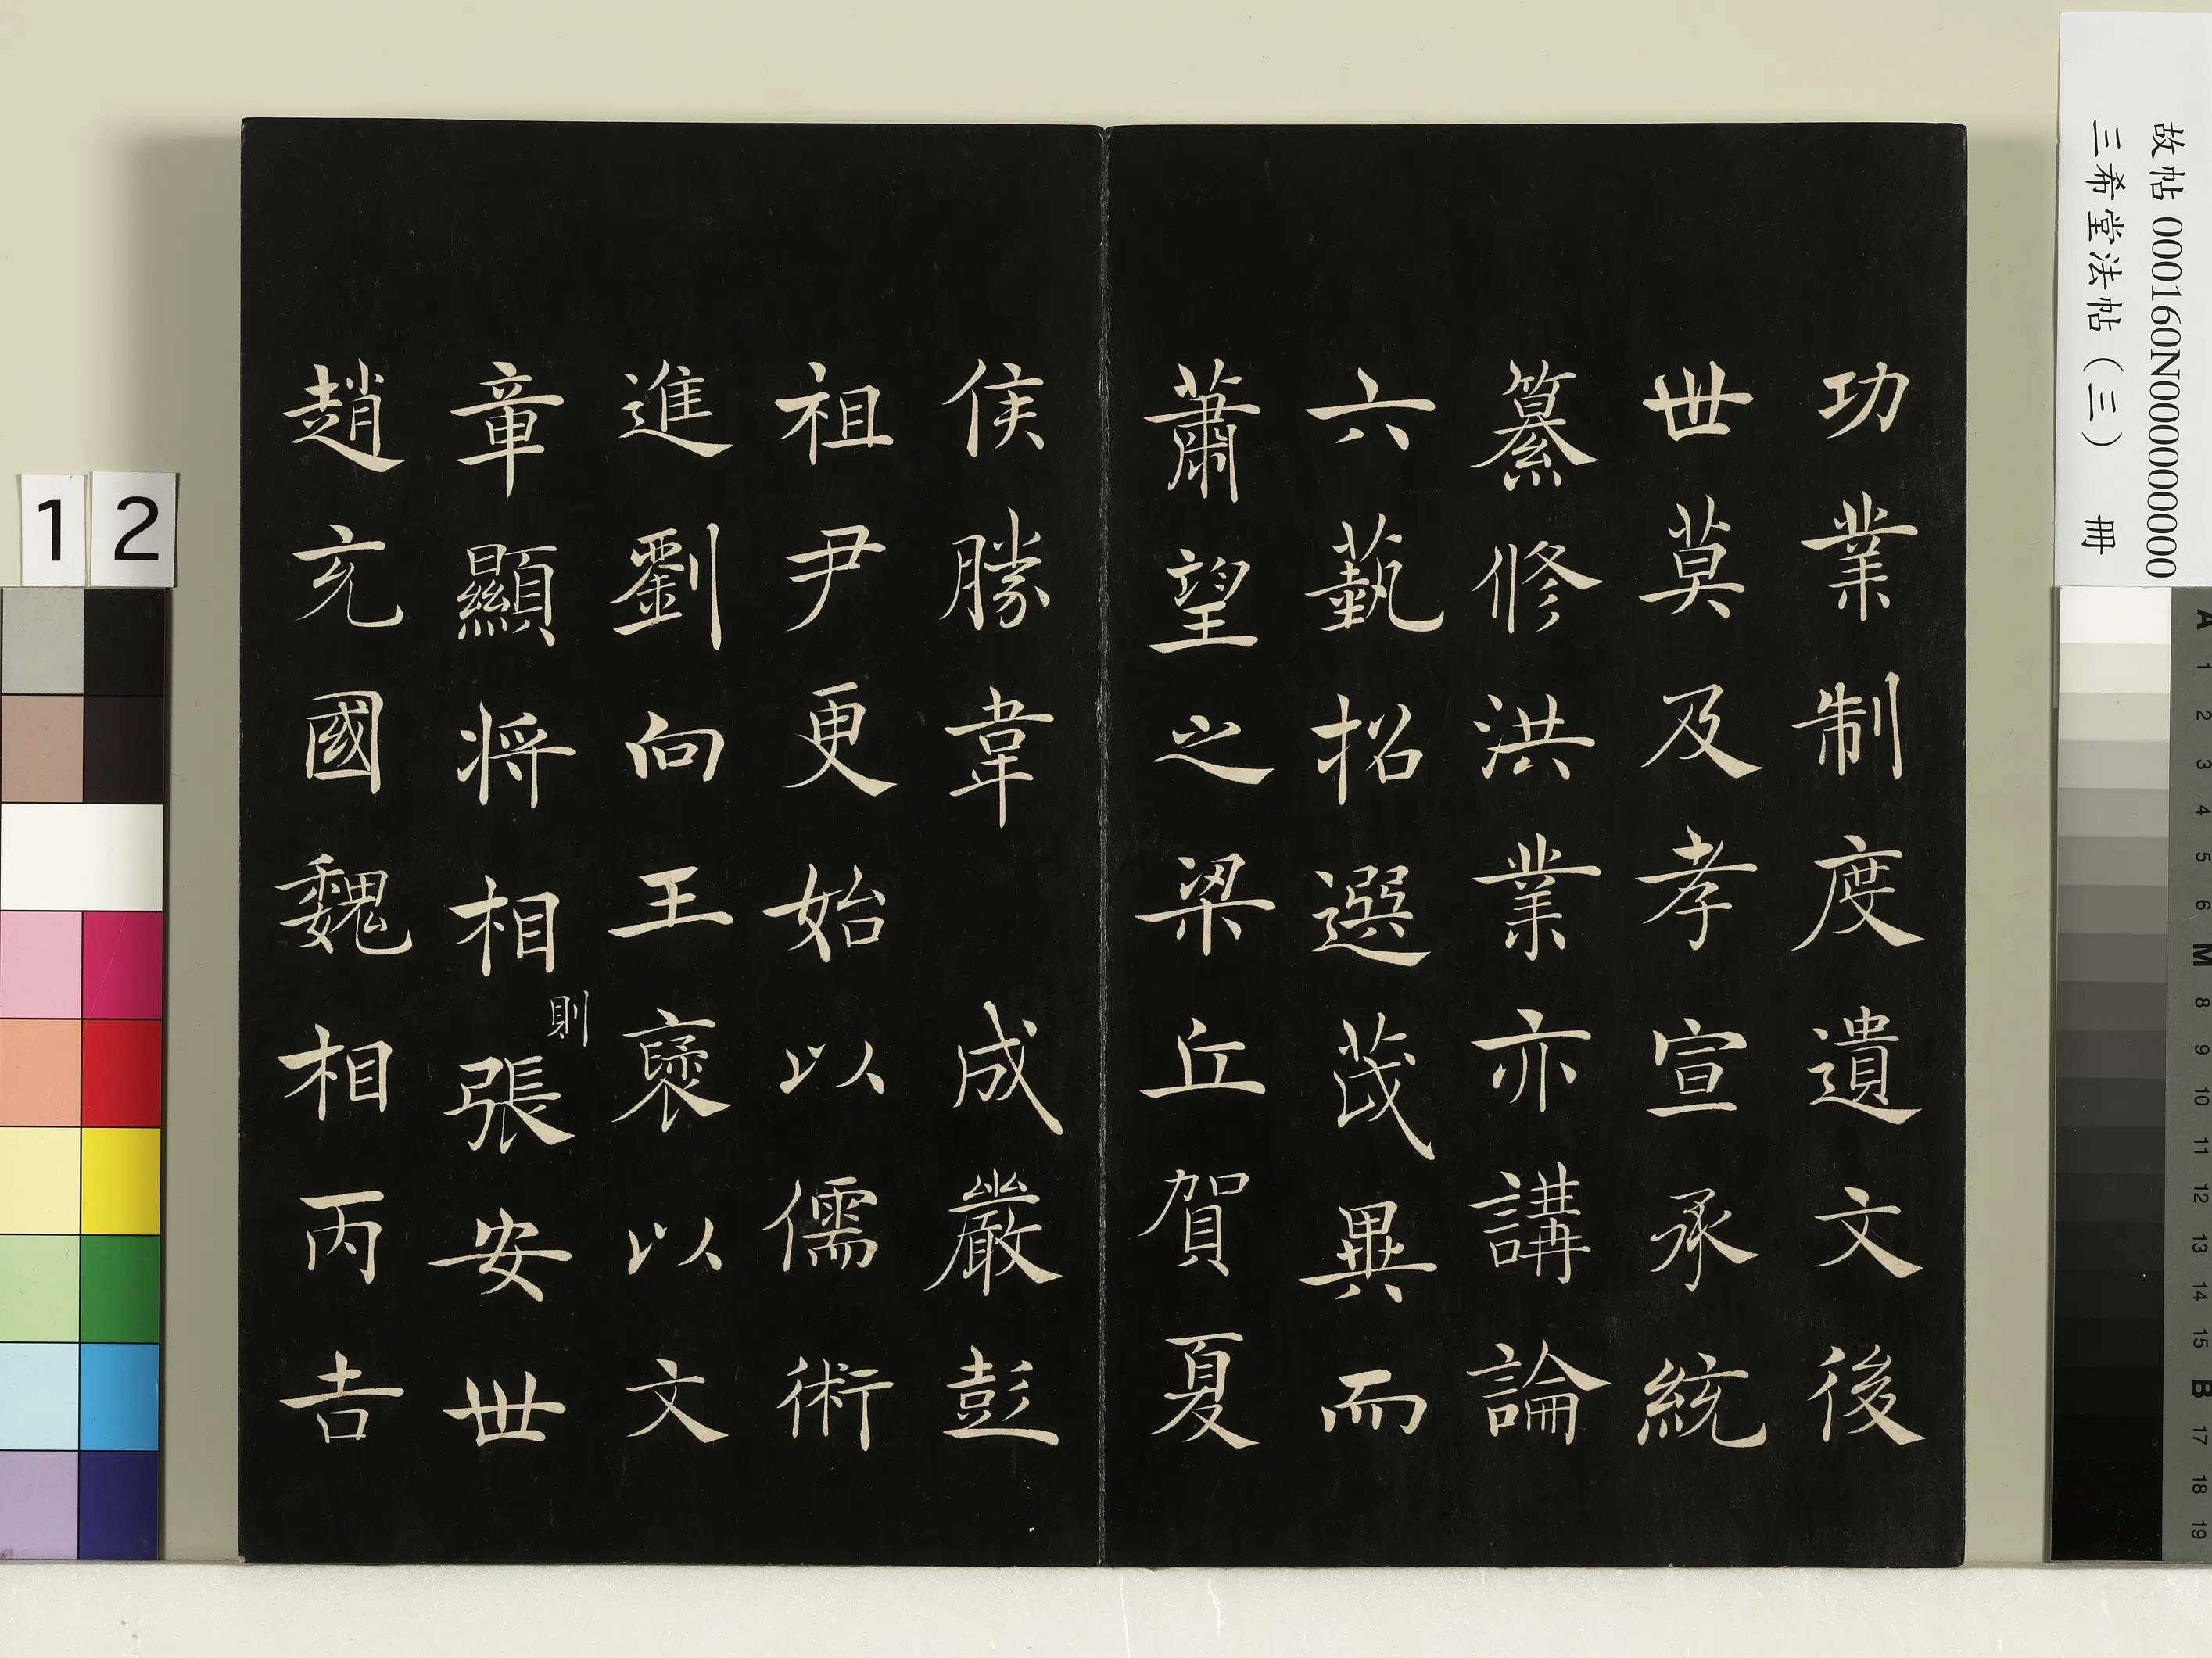 功業制度遺文後
世莫及孝宣承統
纂修洪業亦講論
六藝招選茂異而
蕭望之梁丘賀夏
侯勝韋 成嚴彭
祖尹更始以儒術
進劉向王襃以文
章顯將相張安世
則
趙充國魏相丙吉
故帖 000160N000000000
三希堂法帖(三) 冊
12
A 1 2 3 4 5 6 M 8 9 10 11 12 13 14 15 B 17 18 19